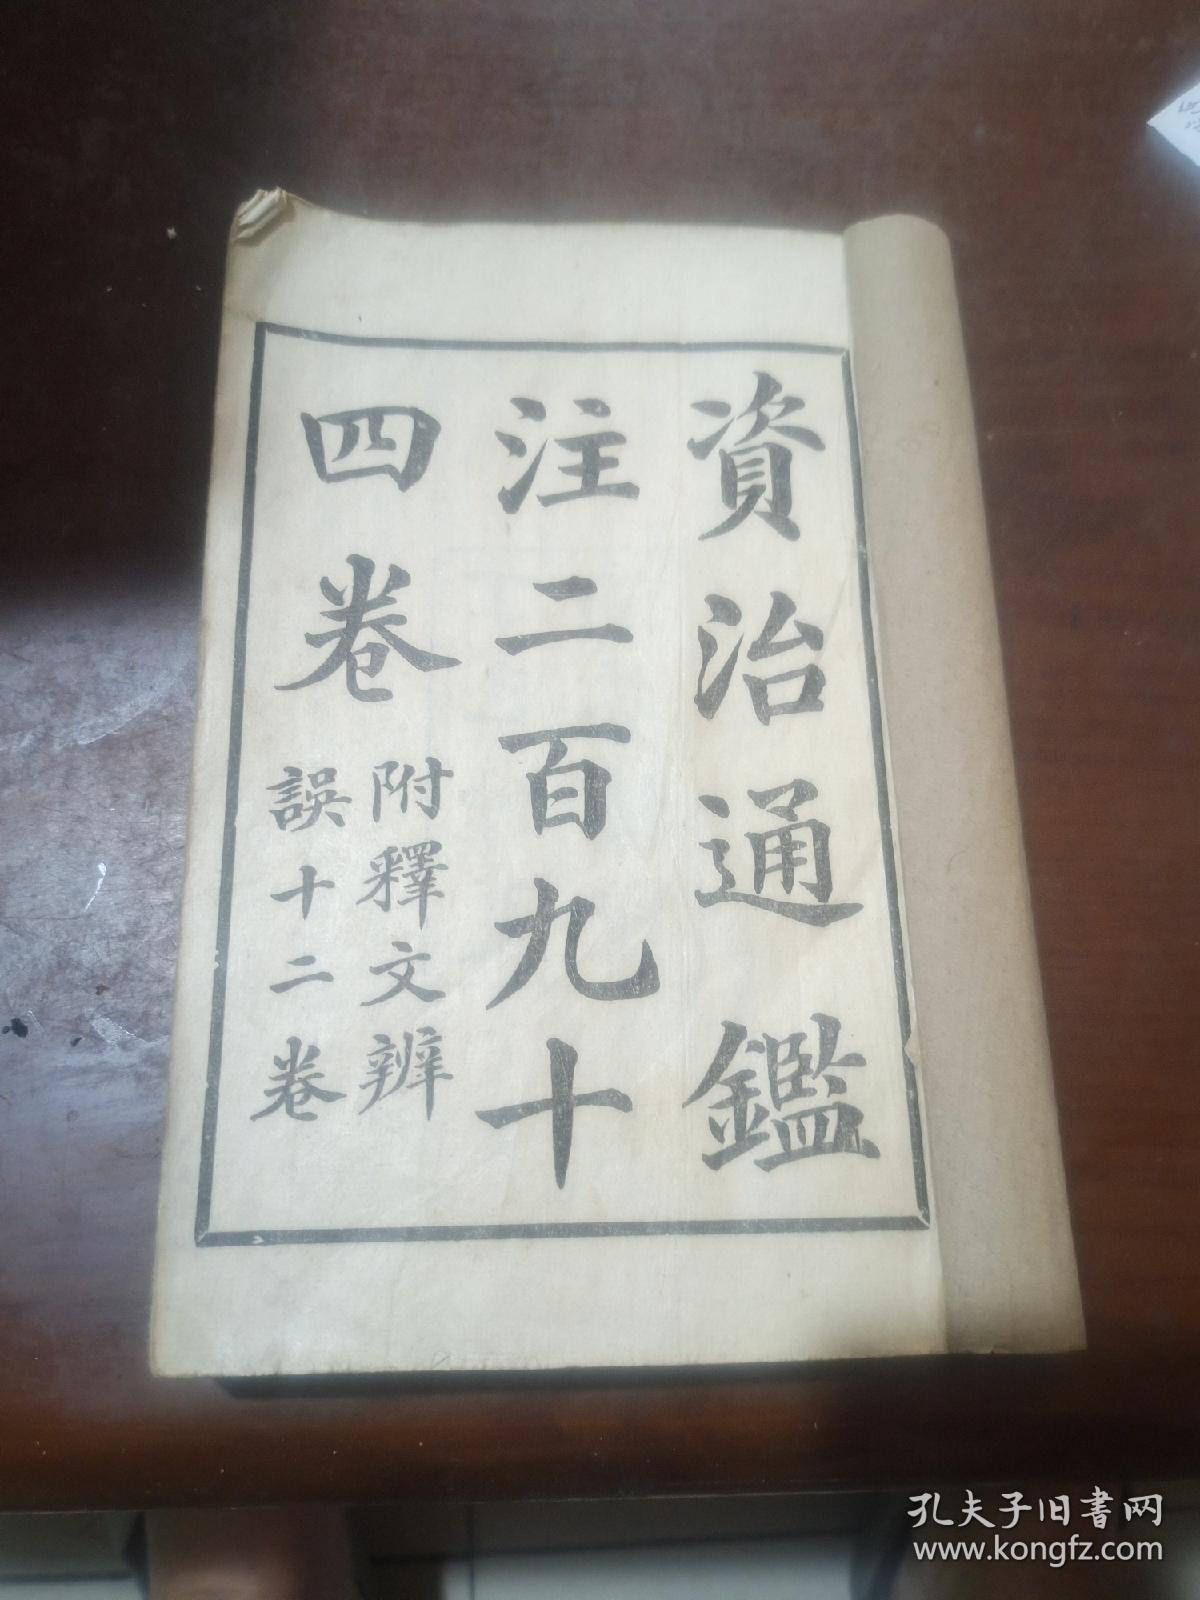 資治通鑑
注二百九十
四卷
附釋文辨
誤十二卷
孔夫子旧书网
www.kongfz.com